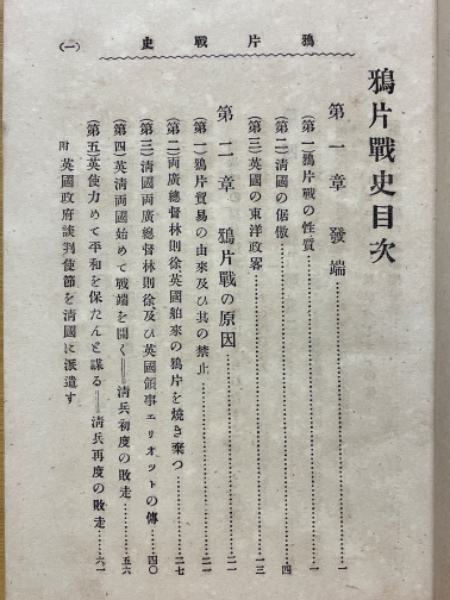 鴉片戰史
(一)
鴉片戰史目次
第一章 發端……一
(第一)鴉片戰の性質……一
(第二)淸國の倨傲……四
(第三)英國の東洋政畧……一三
第二章 鴉片戰の原因……二一
(第一)鴉片貿易の由來及ひ其の禁止……二一
(第二)兩廣總督林則徐英國舶來の鴉片を燒き棄つ……二七
(第三)淸國兩廣總督林則徐及ひ英國領事エリオットの傳……四〇
(第四)英淸兩國始めて戰端を開く——淸兵初度の敗走……五六
(第五)英使力めて平和を保たんと謀る——淸兵再度の敗走……六一
附 英國政府談判使節を淸國に派遣す